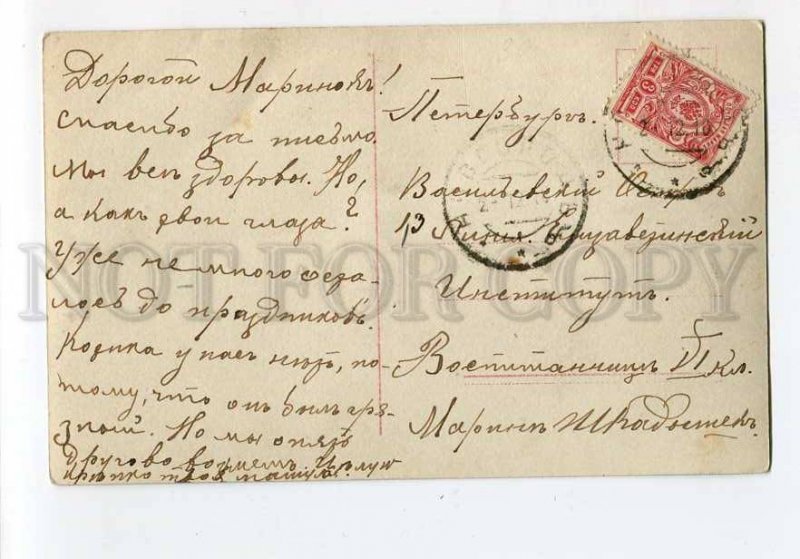 Дорогой Мариновъ!
спасибо за письмо.
Мы всѣ здоровы. Но,
а какъ твои глаза?
Уже немного оста-
лось до праздниковъ.
у насъ нѣтъ, по-
тому, что онъ былъ гря-
зный. Но мы опять
другово возмемъ. Цѣлую
крѣпко твоя мамуля.
Петербургъ.
Васильевский Островъ
13 Линия. Елизаветинский
Институтъ.
Воспитанницѣ VI кл.
Маринѣ
NOT FOR COPY